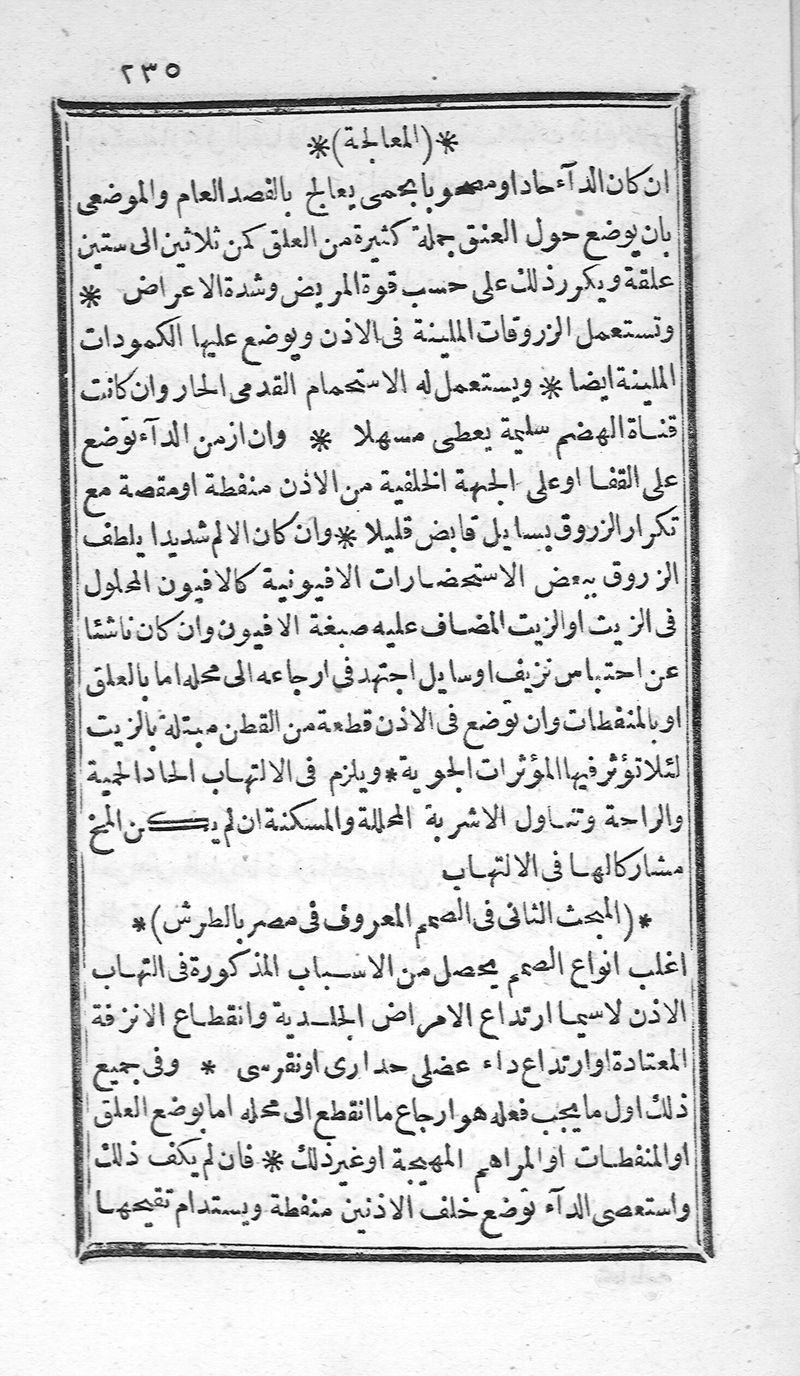 ٢٣٥
*(المعالجة)*
ان كان الدآء حادا ومصحوبا بحمى يعالج بالفصد العام والموضعى
بان يوضع حول العنق جملة كثيرة من العلق كمن ثلاثين الى ستين
علقة ويكرر ذلك على حسب قوة المريض وشدة الاعراض *
وتستعمل الزروقات الملينة فى الاذن ويوضع عليها الكمودات
الملينة ايضا * ويستعمل له الاستحمام القدمى الحار وان كانت
قناة الهضم سليمة يعطى مسهلا * وان ازمن الدآء توضع
على القفا او على الجهة الخلفية من الاذن منفطة او مقصة مع
تكرار الزروق بسايل قابض قليلا * وان كان الالم شديدا يلطف
الزروق ببعض الاستحضارات الافيونية كالافيون المحلول
فى الزيت او الزيت المضاف عليه صبغة الافيون وان كان ناشئا
عن احتباس نزيف او سايل اجتهد فى ارجاعه الى محله اما بالعلق
او بالمنفطات وان توضع فى الاذن قطعة من القطن مبتلة بالزيت
لئلا تؤثر فيها المؤثرات الجوية * ويلزم فى الالتهاب الحاد الحمية
والراحة وتناول الاشربة المحللة والمسكنة ان لم يكن المخ
مشاركا لها فى الالتهاب
*(المبحث الثانى فى الصمم المعروف فى مصر بالطرش)*
اغلب انواع الصمم يحصل من الاسباب المذكورة فى التهاب
الاذن لاسيما ارتداع الامراض الجلدية وانقطاع الانزفة
المعتادة او ارتداع داء عضلى حدارى او نقرسى * وفى جميع
ذلك اول ما يجب فعله هو ارجاع ما انقطع الى محله اما بوضع العلق
او المنفطات او المراهم المهيجة او غير ذلك * فان لم يكف ذلك
واستعصى الدآء توضع خلف الاذنين منفطة ويستدام تقيحها